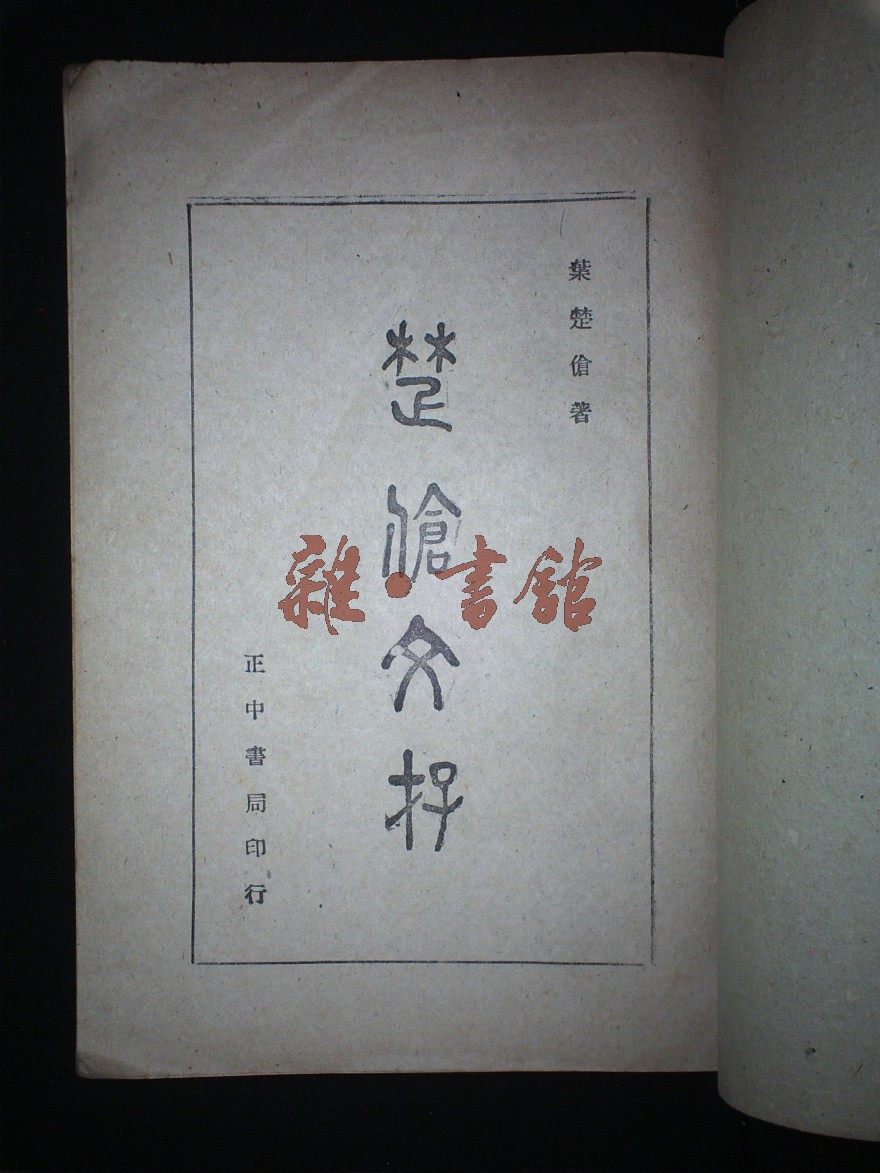 葉楚傖著
楚傖文存
正中書局印行
雜·書館